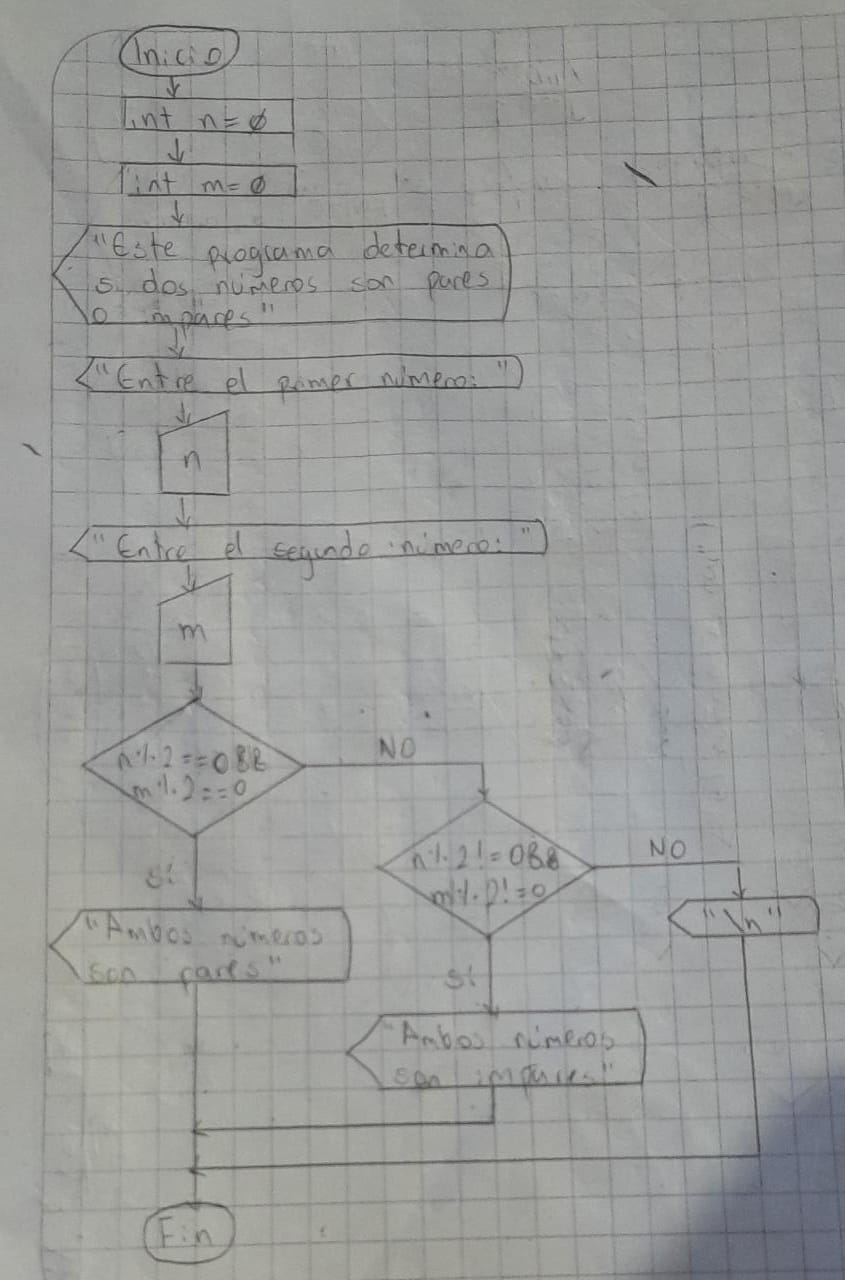 Inicio
int n=0
int m=0
"Este programa determina
si dos números son pares
o impares"
"Entre el primer número: "
n
"Entre el segundo número: "
m
n%2==0&&
m%2==0
NO
n%2!=0&&
m%2!=0
NO
"\n"
sí
"Ambos números
son pares"
sí
"Ambos números
son impares"
Fin